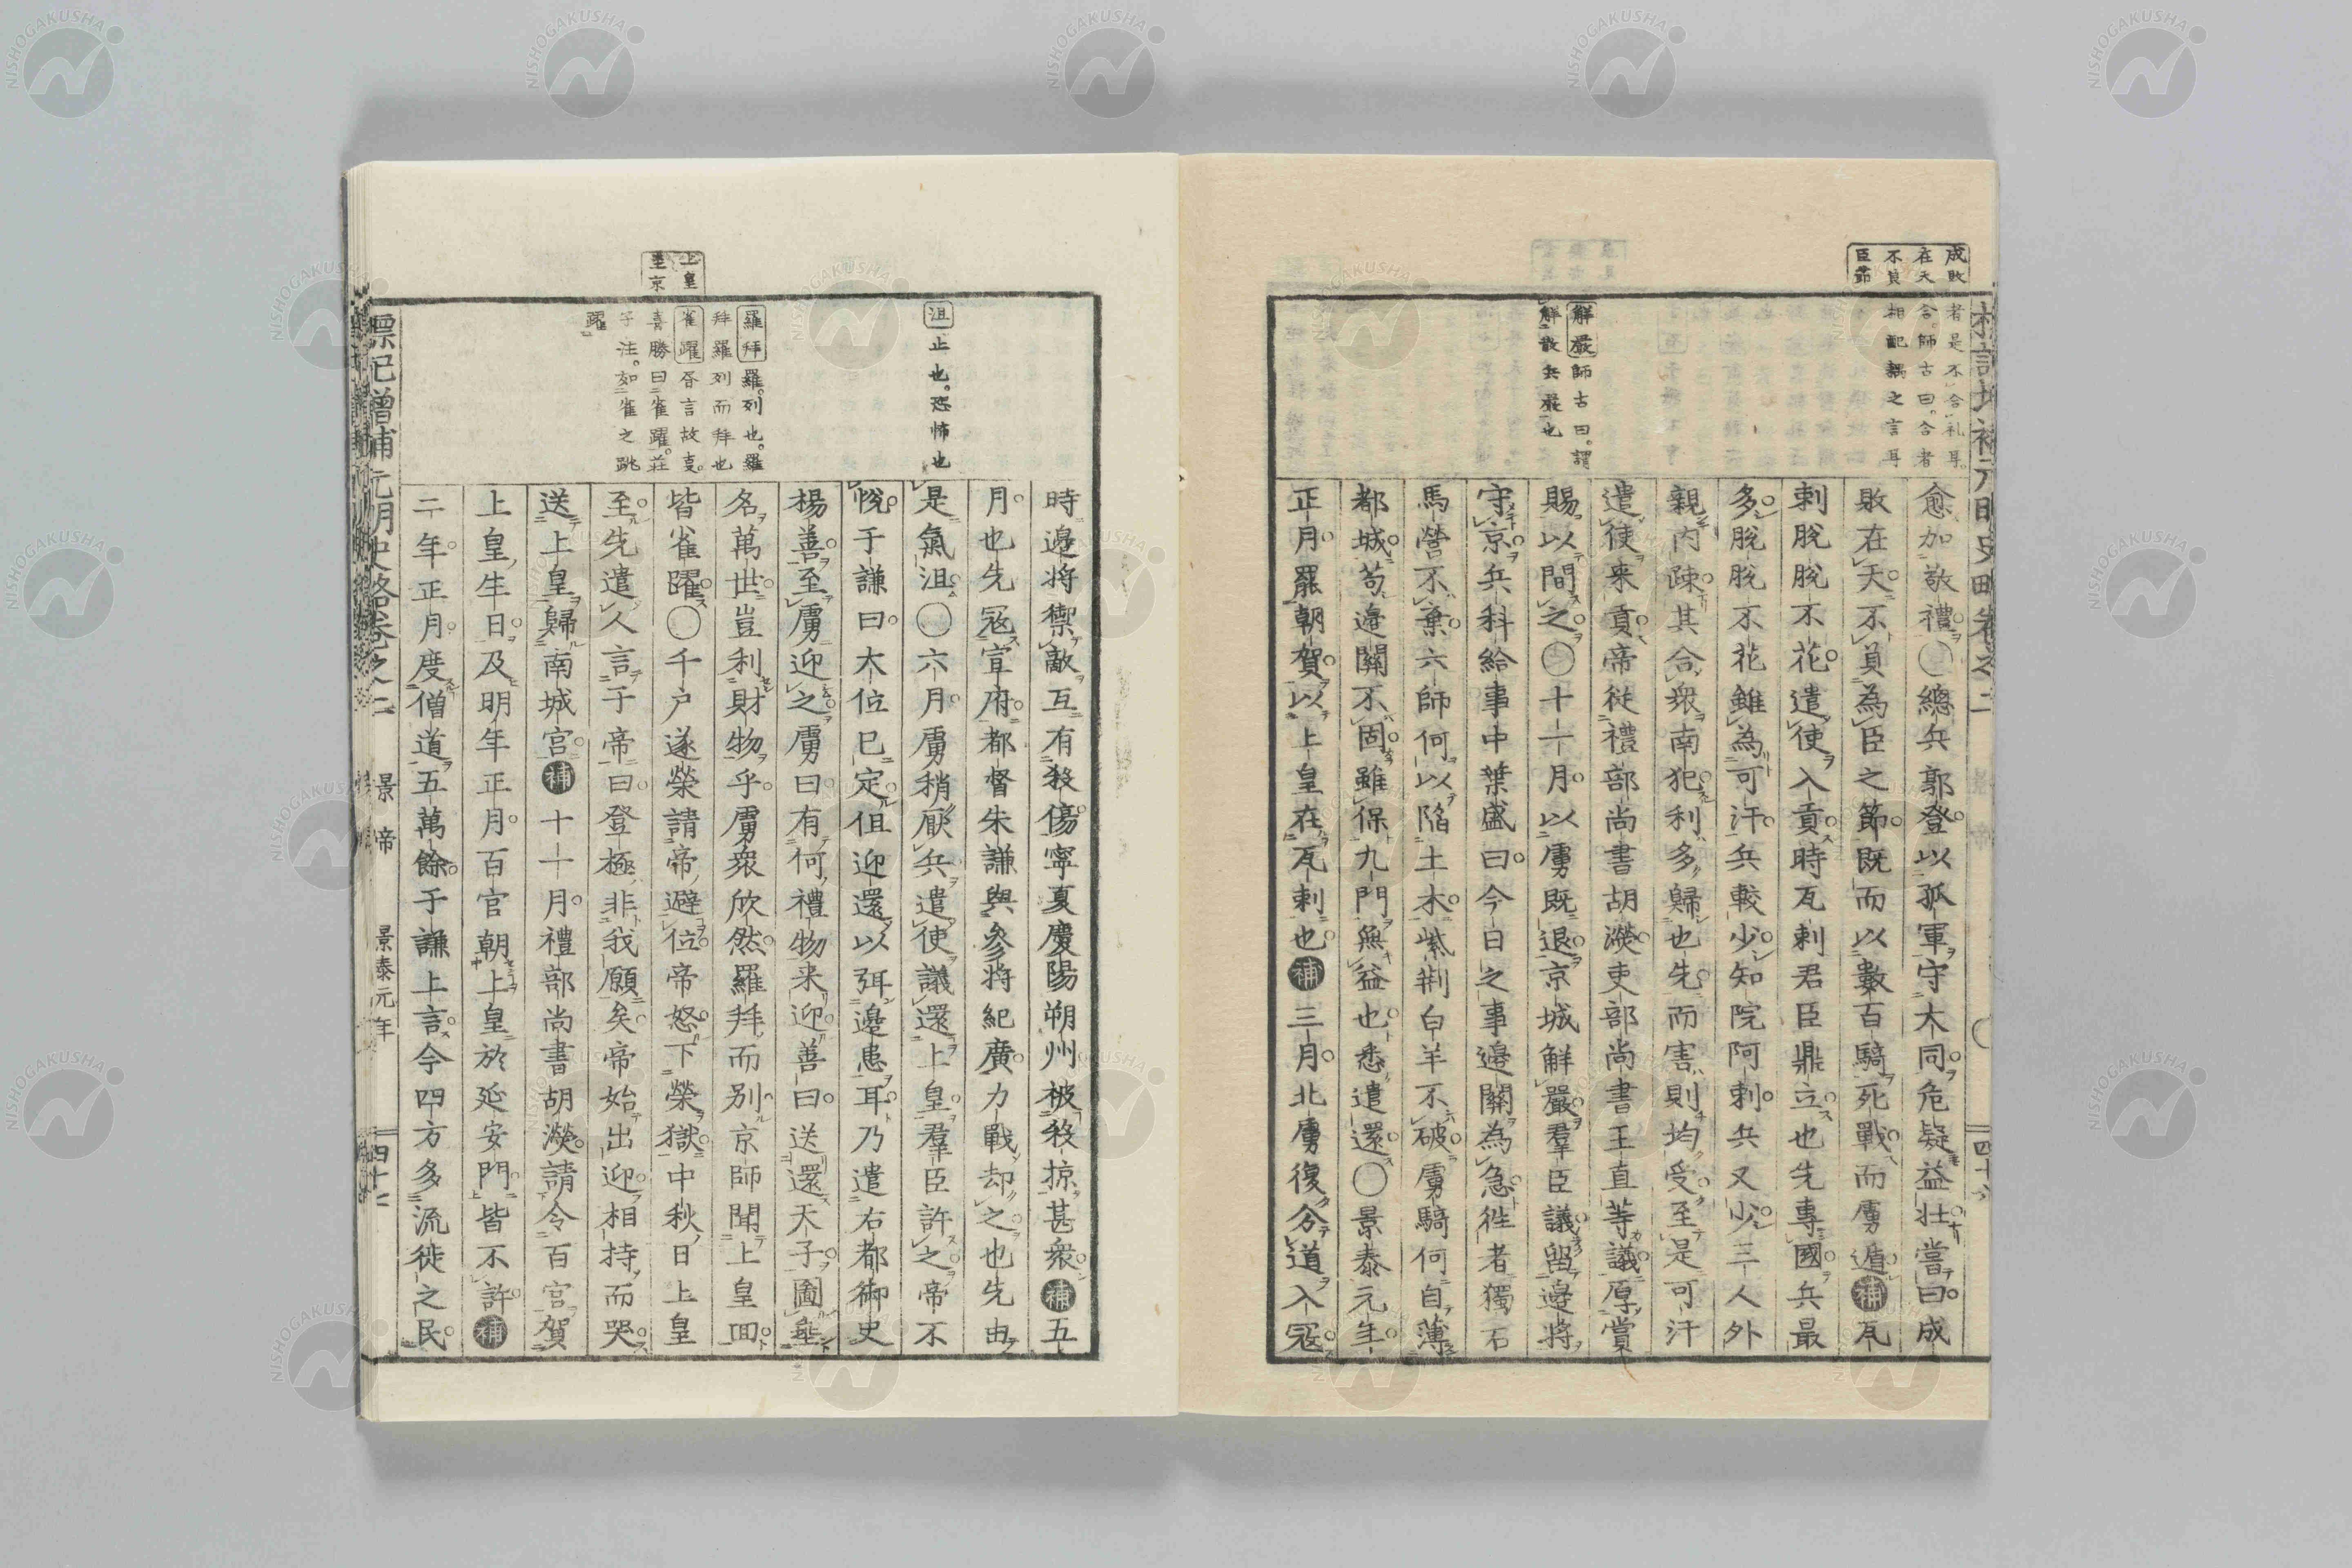 成敗
在天
不負
臣節
者是不合礼耳
合。師古曰。合者
相配耦之言耳
愈加敬禮〇總兵郭登以孤軍守大同危疑益壯嘗曰成
敗在天不負為臣之節既而以數百騎死戰而虜遁補瓦
剌脫脫不花遣使入貢時瓦剌君臣鼎立也先專國兵最
多脫脫不花雖為可汗兵較少知院阿剌兵又少三人外
親内疎其合衆南犯利多歸也先而害則均受至是可汗
遣使来貢帝從禮部尚書胡濙吏部尚書王直等議厚賞
賜以間之〇十一月以虜既退京城解嚴羣臣議留邊將
守京兵科給事中葉盛曰今日之事邊關為急徃者獨石
馬營不棄六師何以陷土木紫荆白羊不破虜騎何自薄
都城苟邊關不固雖保九門無益也悉遣還〇景泰元年
正月罷朝賀以上皇在瓦剌也補三月北虜復分道入冦
解嚴師古曰。謂
解散兵嚴也
四十六
時邊将禦敵互有殺傷寧夏慶陽朔州被殺掠甚衆補五
月也先冦宣府都督朱謙與參将紀廣力戰却之也先由
是氣沮〇六月虜稍厭兵遣使議還上皇羣臣許之帝不
悅于謙曰大位已定但迎還以弭邊患耳乃遣右都御史
楊善至虜迎之虜曰有何禮物来迎善曰送還天子圖垂
名萬世豈利財物乎虜衆欣然羅拜而别京師聞上皇囬
皆雀躍〇千户遂榮請帝避位帝怒下榮獄中秋日上皇
至先遣人言于帝曰登極非我願矣帝始出迎相持而哭
送上皇歸南城宮補十一月禮部尚書胡濙請令百官賀
上皇生日及明年正月百官朝上皇於延安門皆不許補
二年正月度僧道五萬餘于謙上言今四方多流徙之民
沮止也。恐怖也
上皇
至京
羅拜羅。列也。羅
拜羅列而拜也
雀躍吾言故
喜勝曰雀躍。莊
子注。如雀之跳
躍
標記增補元明史略卷之二
景帝
景泰元年
四十七